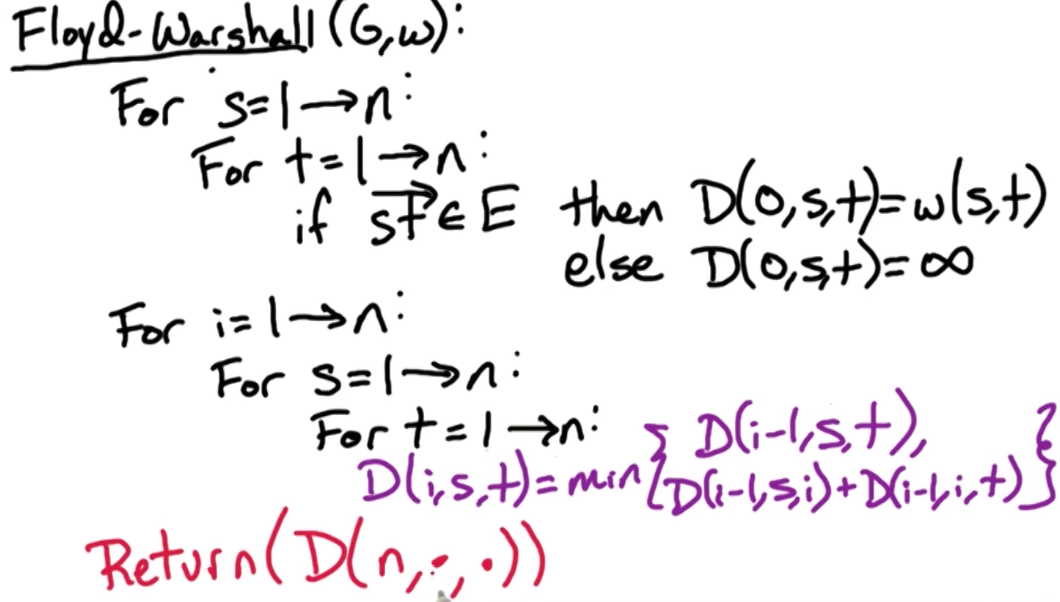 Floyd-Warshall(G,w):
For s=1→n:
For t=1→n:
if s⃗t⃗ ∈ E then D(0,s,t)=w(s,t)
else D(0,s,t)=∞
For i=1→n:
For s=1→n:
For t=1→n:
D(i,s,t)=min{D(i-1,s,t),
D(i-1,s,i)+D(i-1,i,t)}
Return(D(n,·,·))